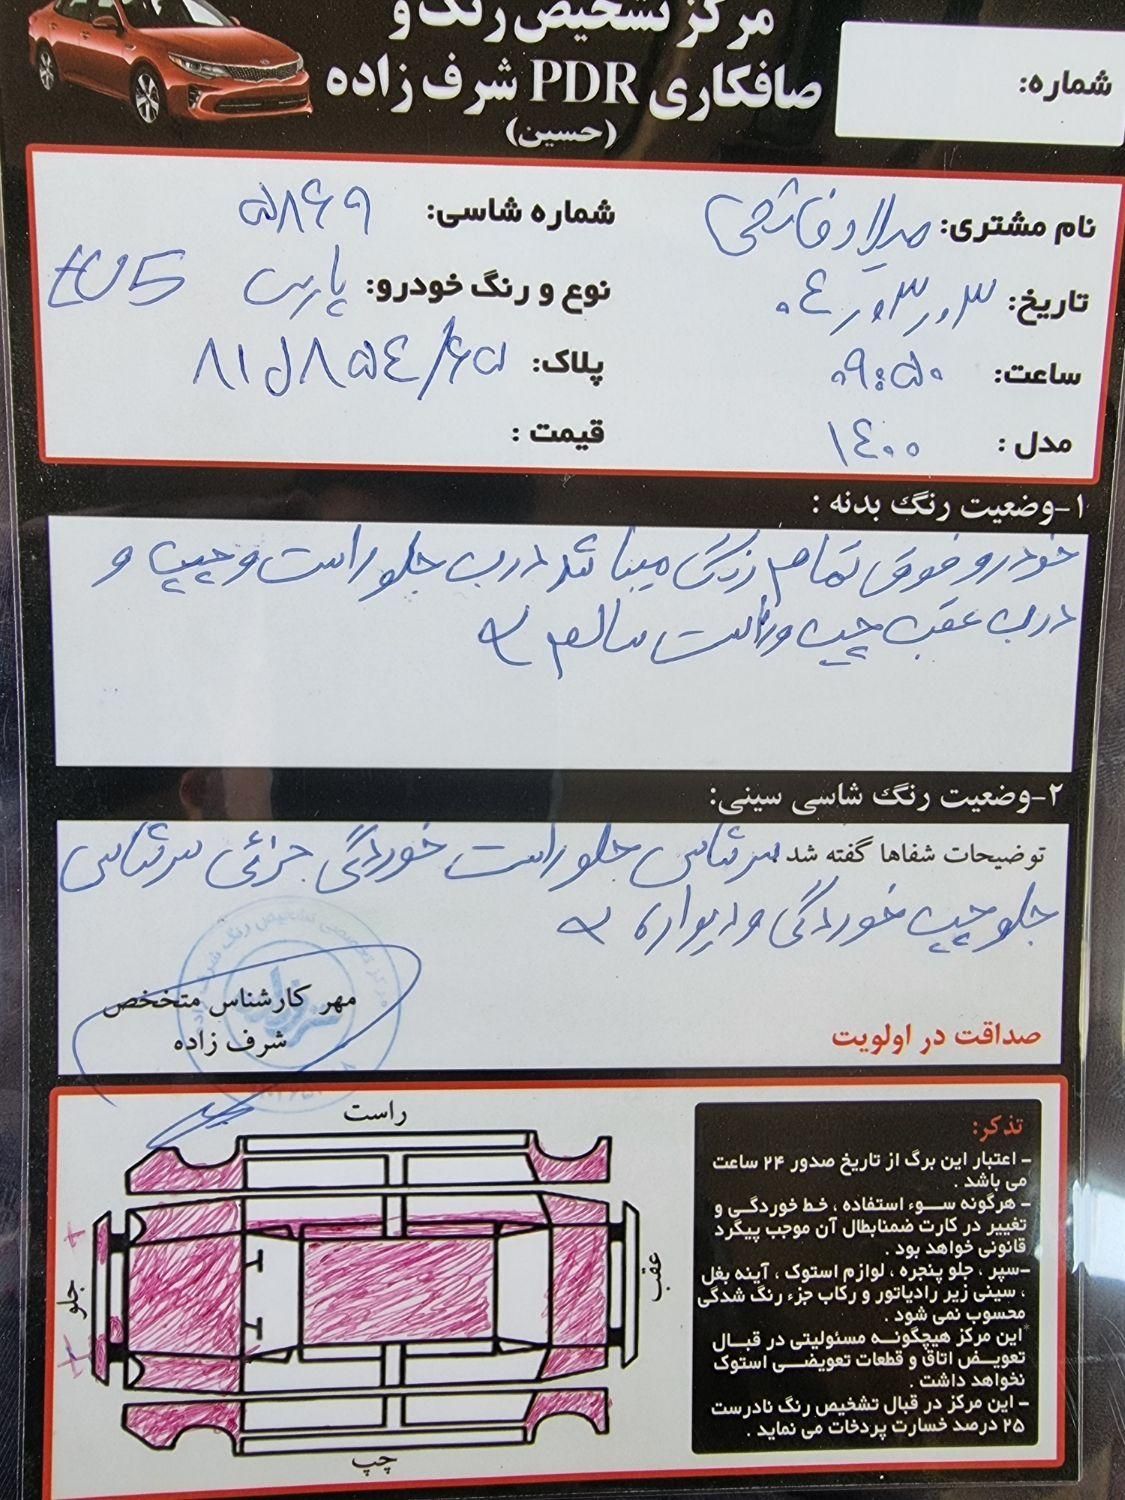 مرکز تشخیص رنگ و
صافکاری PDR شرف زاده
(حسین)
شماره:
نام مشتری: میلاد فاتحی
شماره شاسی: ۵۸۶۹
تاریخ: ۰۳ر۰۳ر۰۴
نوع و رنگ خودرو: پارس EU5
ساعت: ۰۹:۵۰
پلاک: ۸۱ل۸۵۴/۶۵
مدل : ۱۴۰۰
قیمت :
۱-وضعیت رنگ بدنه :
خودرو فوق تمام رنگ میباشد درب جلو راست و چپ و
درب عقب چپ و راست سالم
۲-وضعیت رنگ شاسی سینی:
توضیحات شفاها گفته شد سرشاسی جلو راست خوردگی جزئی سرشاسی
جلو چپ خوردگی و دیواره
مهر کارشناس متخخص
شرف زاده
صداقت در اولویت
راست
جلو
عقب
چپ
تذکر:
- اعتبار این برگ از تاریخ صدور ۲۴ ساعت
می باشد .
- هرگونه سوء استفاده ، خط خوردگی و
تغییر در کارت ضمنابطال آن موجب پیگرد
قانونی خواهد بود .
-سپر ، جلو پنجره ، لوازم استوک ، آینه بغل
، سینی زیر رادیاتور و رکاب جزء رنگ شدگی
محسوب نمی شود .
*این مرکز هیچگونه مسئولیتی در قبال
تعویض اتاق و قطعات تعویضی استوک
نخواهد داشت .
- این مرکز در قبال تشخیص رنگ نادرست
۲۵ درصد خسارت پردخات می نماید .